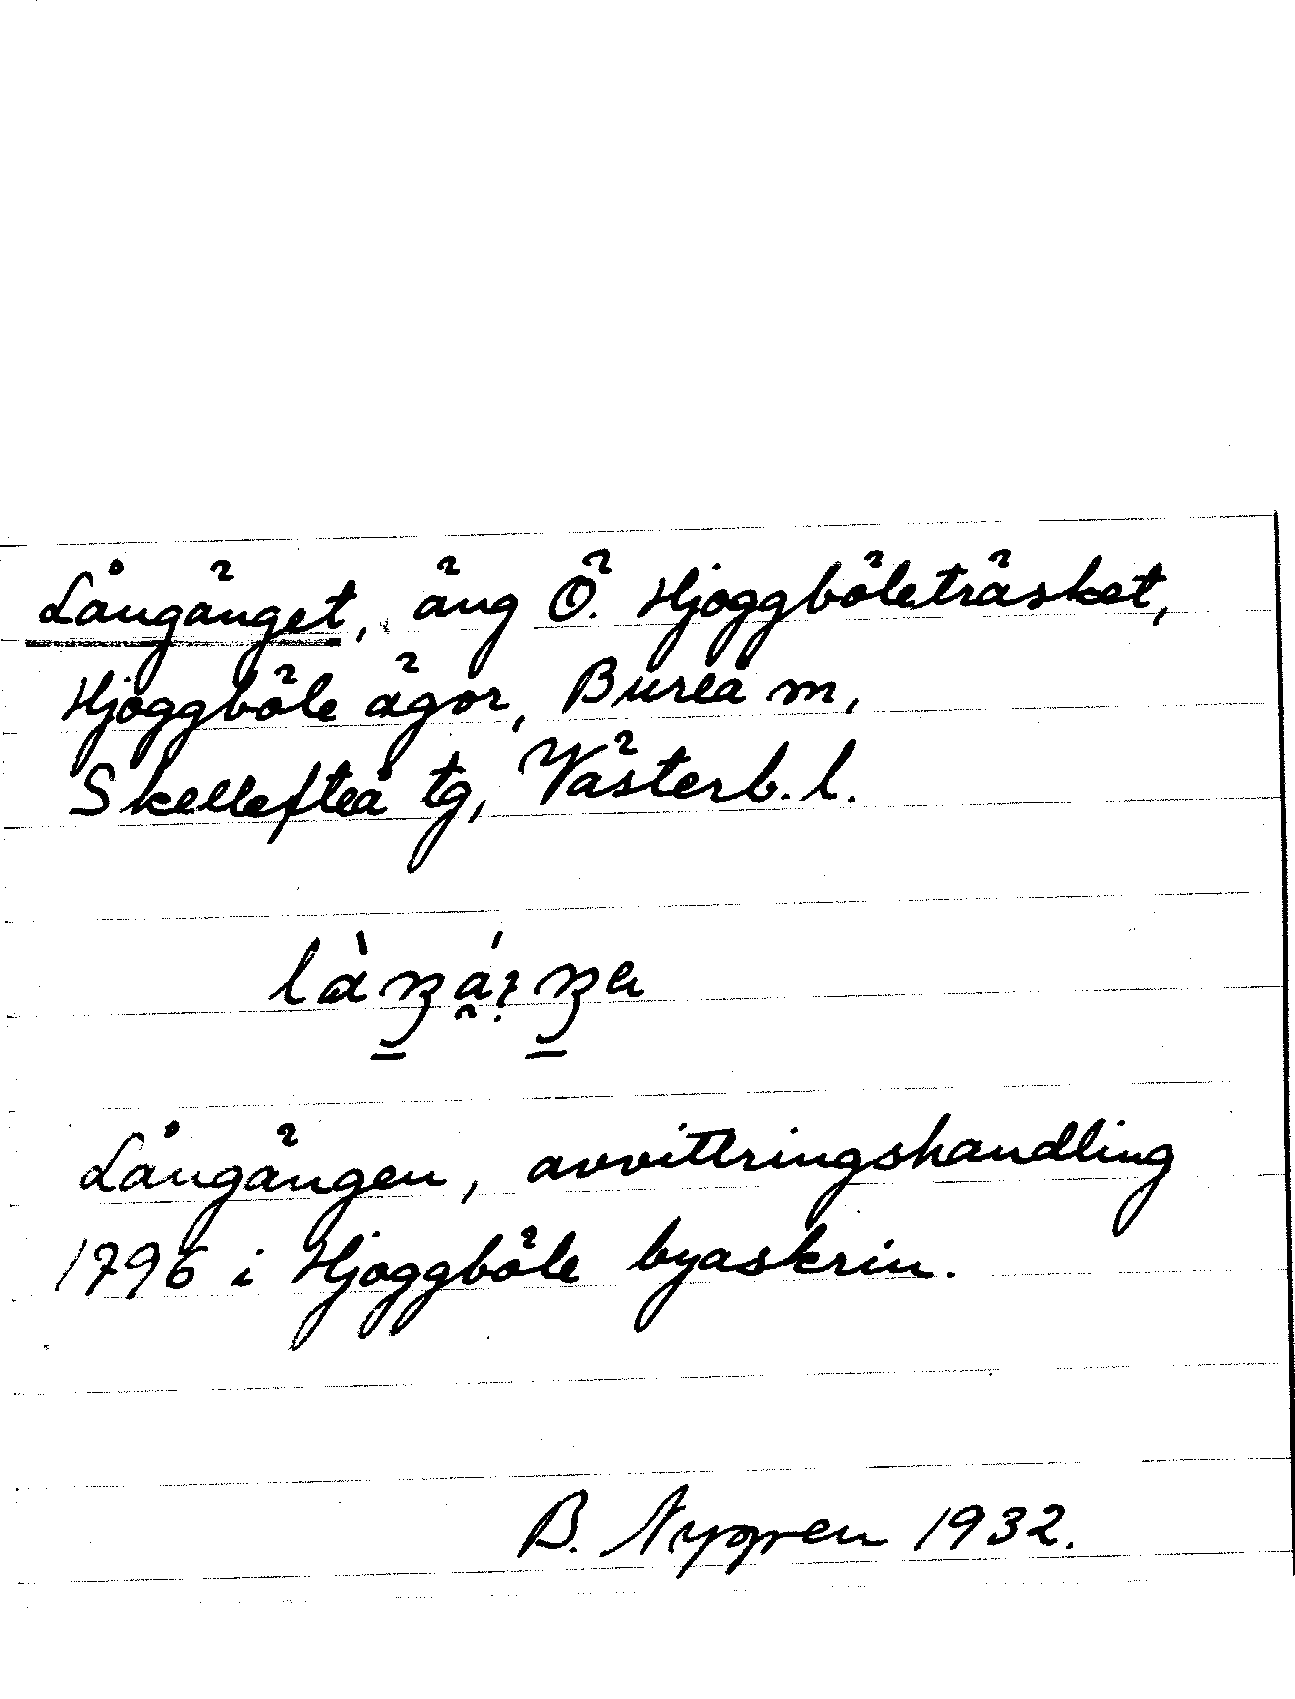 Långänget, äng Ö. Hjoggböleträsket,
Hjoggböle ägor, Bureå m,
Skellefteå tg, Västerb. l.
Långängen, avvittringshandling
1796 i Hjoggböle byaskrin.
B. Nygren 1932.